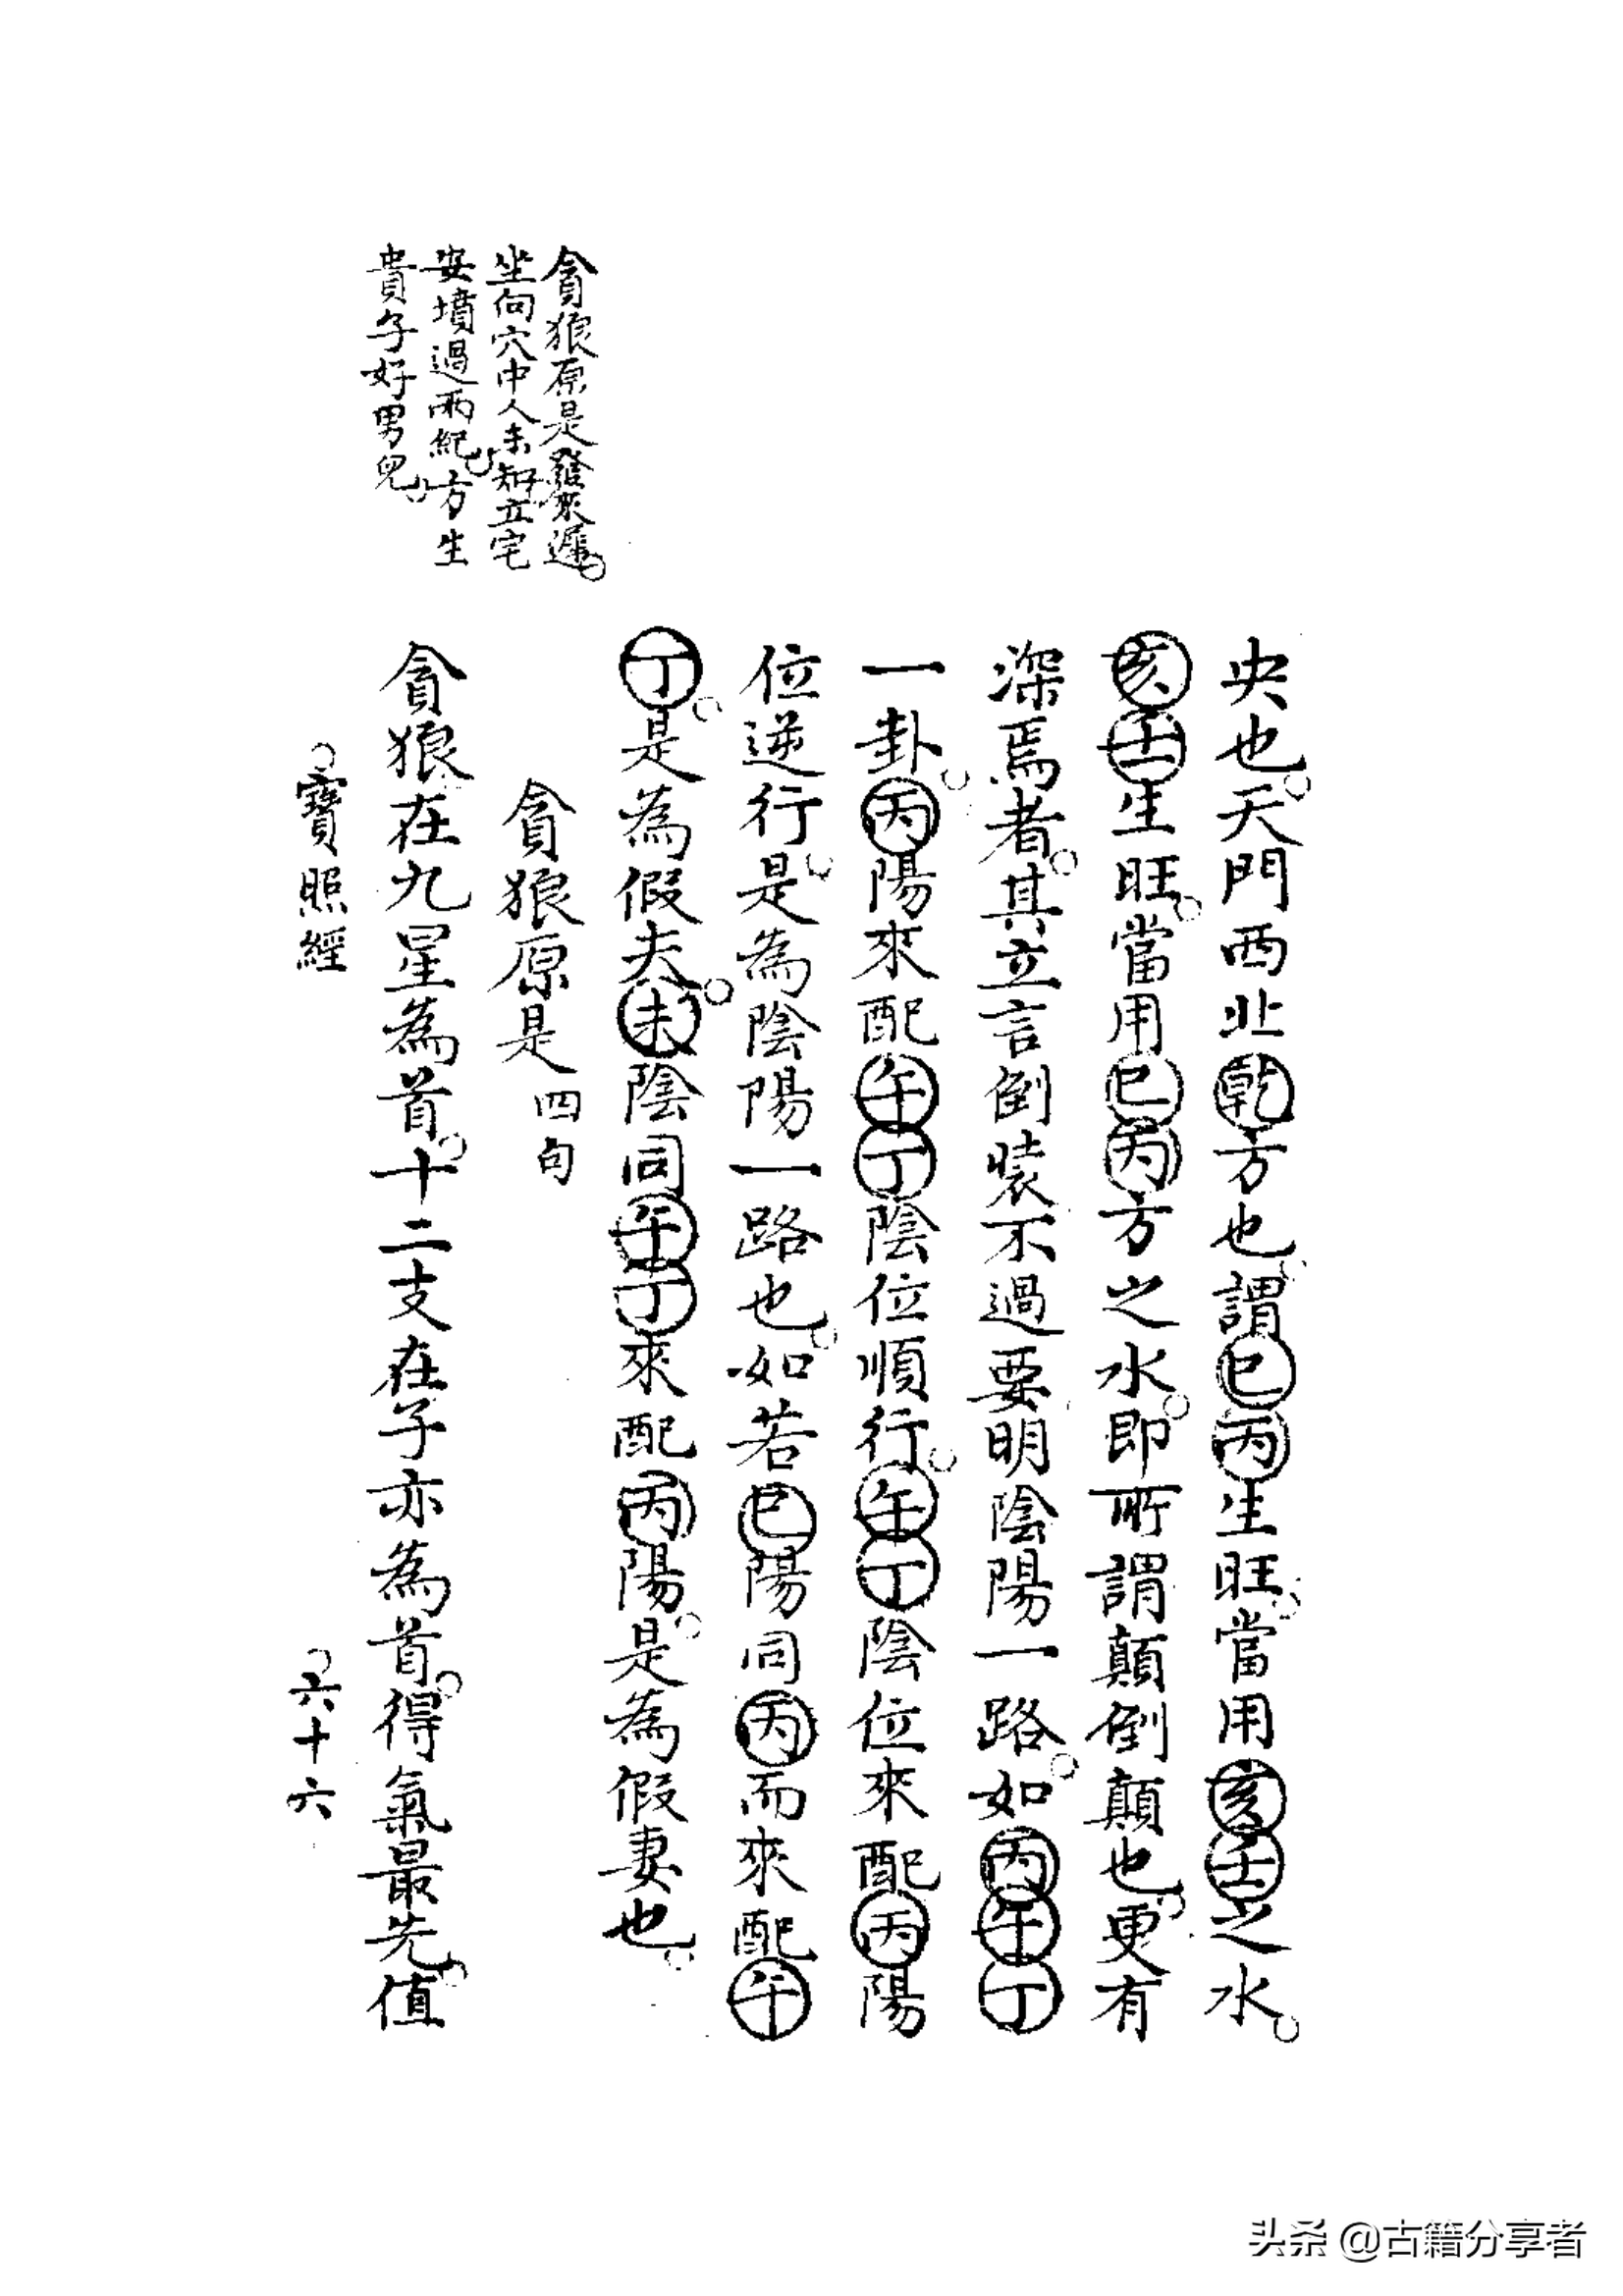 央也。天門西北乾方也。謂巳丙生旺。當用亥壬之水。
亥壬生旺。當用巳丙方之水。即所謂顛倒顛也。更有
深焉者。其立言倒裝不過要明陰陽一路。如丙午丁
一卦。丙陽來配午丁陰位順行。午丁陰位來配丙陽
位逆行。是為陰陽一路也。如若巳陽同丙而來配午
丁。是為假夫。未陰同午丁來配丙陽。是為假妻也。
貪狼原是四句
貪狼在九星為首。十二支在子亦為首。得氣最先。值
貪狼原是發來遲。
坐向穴中人未知立宅
安墳過兩紀。方生
貴子好男兒。
寶照經
六十六
头条 @古籍分享者